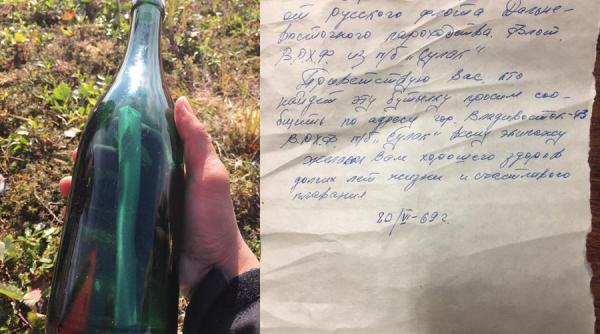 от Русского флота Дальне-
восточного пароходства. Флот.
В.Р.Х.Ф. из п/б „Сулак“
Приветствую Вас, кто
найдет эту бутылку просим соо-
бщить по адресу гор. Владивосток-43
В.Р.Х.Ф. п/б „Сулак“ всему экипажу
желаем Вам хорошего здоров
долгих лет жизни и счастливого
плавания
20/VI-69 г.